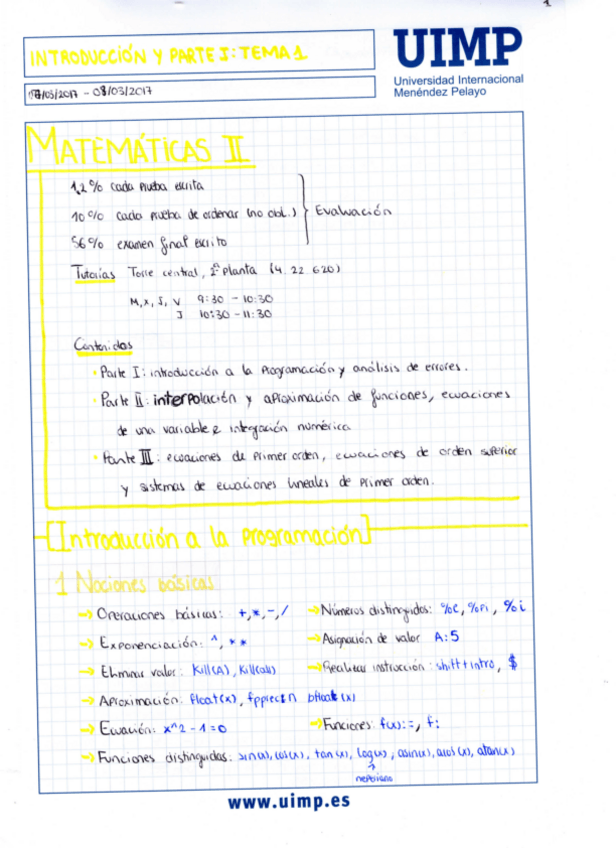 1
INTRODUCCIÓN Y PARTE I: TEMA 1
07/03/2017 - 08/03/2017
UIMP
Universidad Internacional
Menéndez Pelayo
MATEMÁTICAS II
1,2% cada prueba escrita
10% cada prueba de ordenar (no obl.)
56% examen final escrito
Evaluación
Tutorías Torre central, 2ª planta (4.22.620)
M, X, J, V 9:30 - 10:30
J 10:30 - 11:30
Contenidos
· Parte I: introducción a la programación y análisis de errores.
· Parte II: interpolación y aproximación de funciones, ecuaciones
de una variable e integración numérica
· Parte III: ecuaciones de primer orden, ecuaciones de orden superior
y sistemas de ecuaciones lineales de primer orden.
[Introducción a la programación]
1 Nociones básicas
→ Operaciones básicas: +, *, -, / → Números distinguidos: %e, %pi, %i
→ Exponenciación: ^, ** → Asignación de valor A:5
→ Eliminar valor: Kill(A), Kill(all) → Realizar instrucción: shift+intro, $
→ Aproximación: float(x), fpprec:n bfloat(x)
→ Ecuación: x^2-1=0 → Funciones: f(x):=, f:
→ Funciones distinguidas: sin(x), cos(x), tan(x), log(x), asin(x), acos(x), atan(x)
neperiano
www.uimp.es